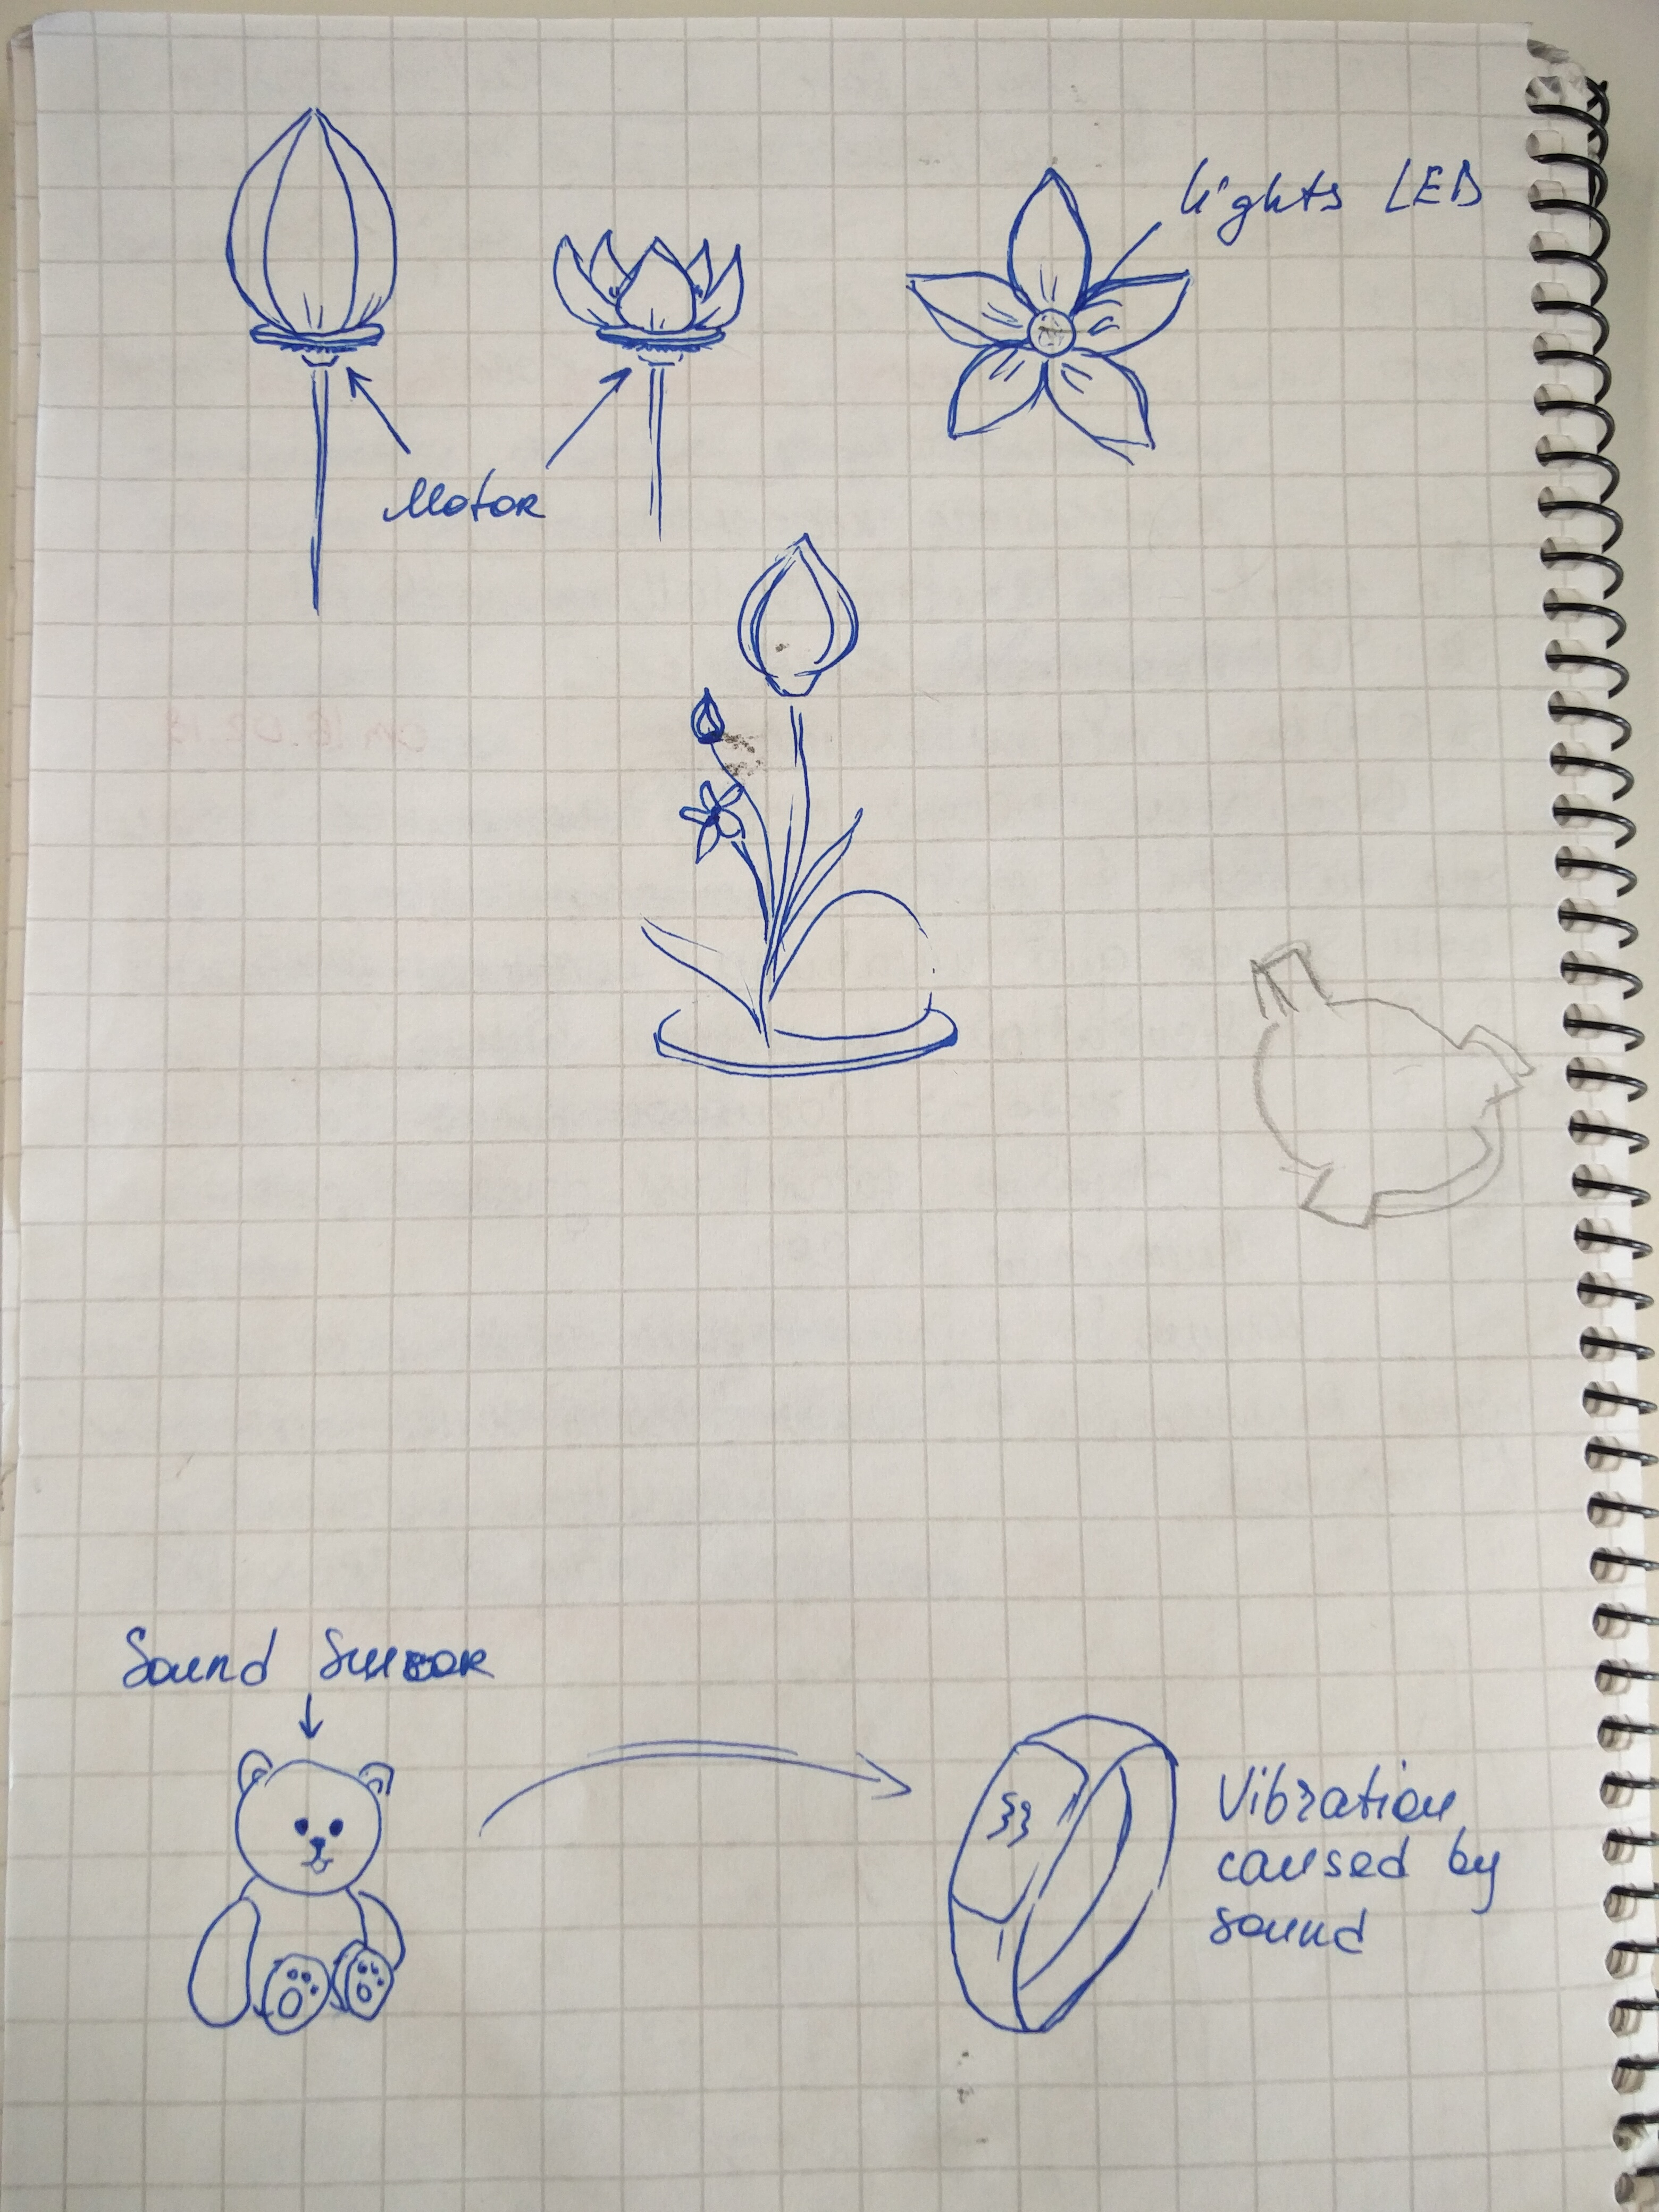 lights LED
Motor
Sound Sensor
Vibration
caused by
sound